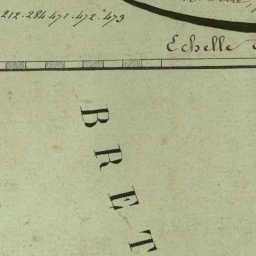 212. 284. 471. 472. 473
Echelle
BRET